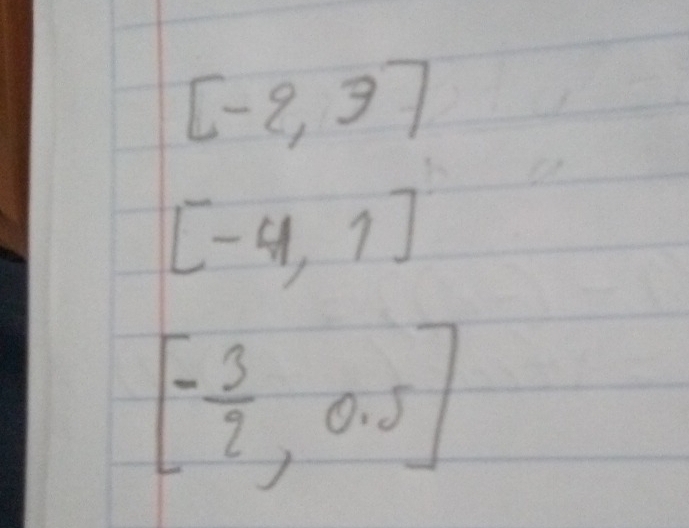 [-2, 3]
[-4, 1]
[-3/2, 0.5]